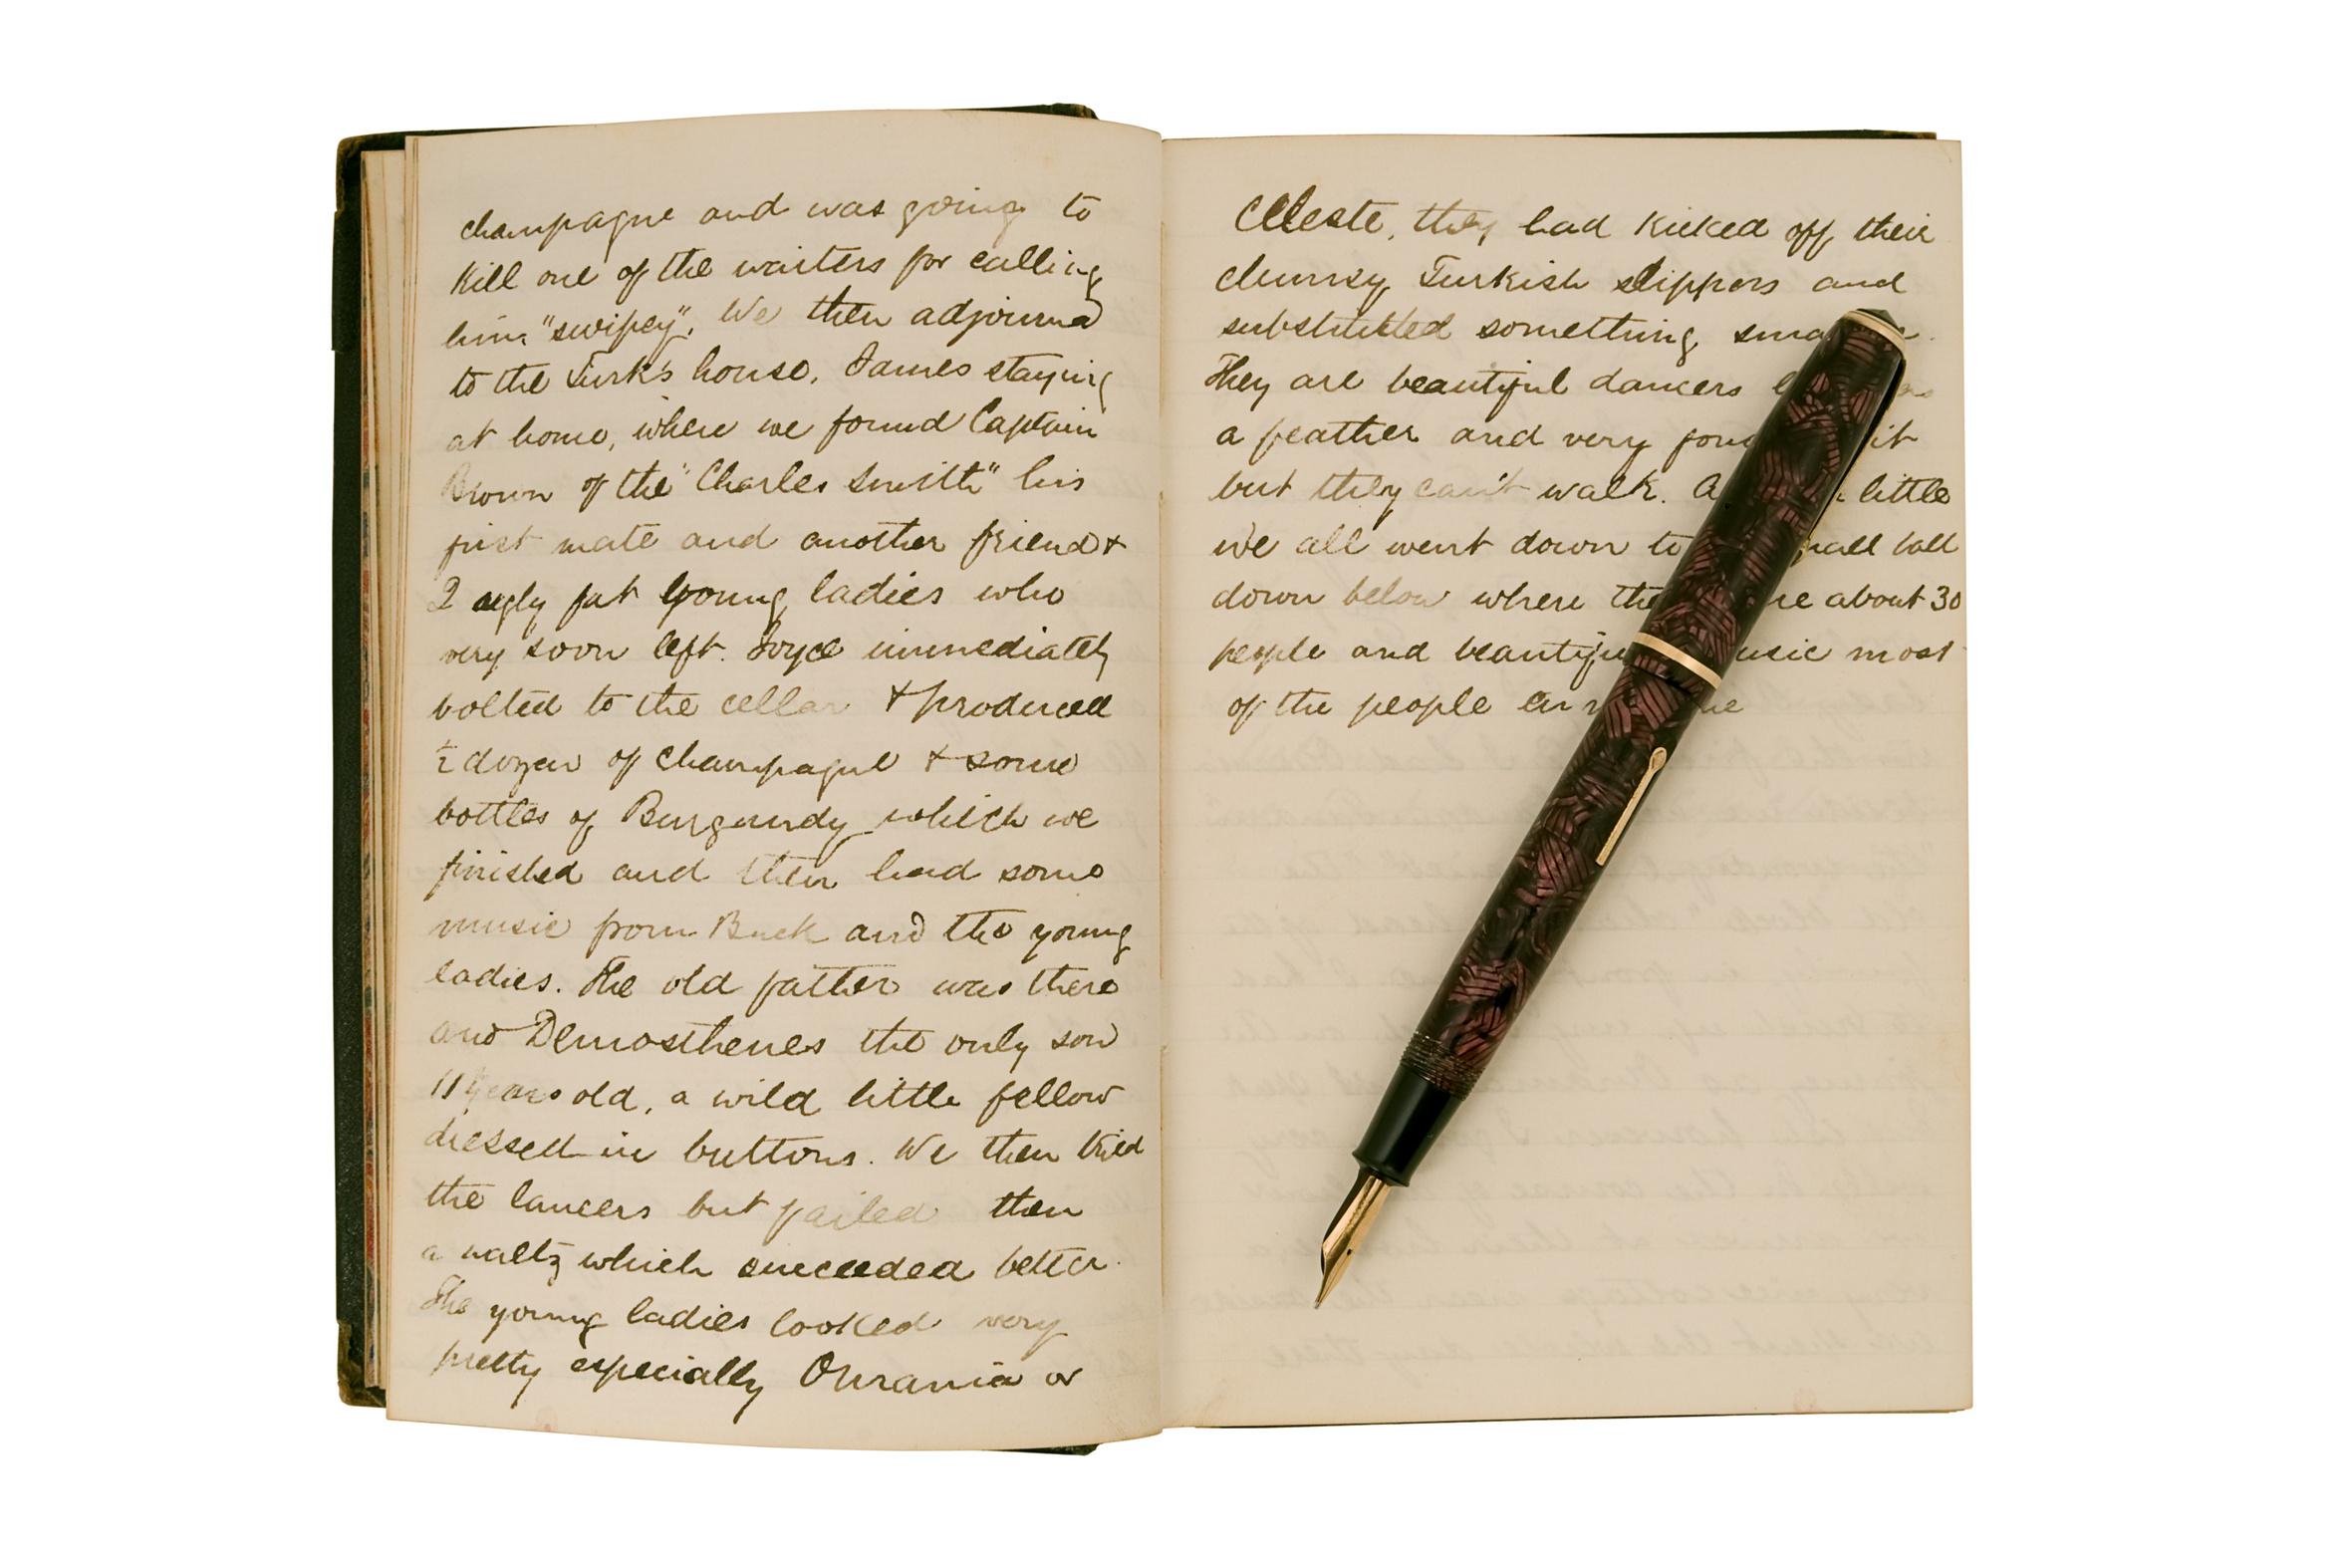 champagne and was going to
kill one of the waiters for calling
him "swipey". We then adjourned
to the Turk's house, James staying
at home, where we found Captain
Brown of the "Charles Smith" his
first mate and another friend &
2 ugly fat young ladies who
very soon left. Joyce immediately
bolted to the cellar & produced
½ dozen of champagne & some
bottles of Burgundy which we
finished and then had some
music from Buck and the young
ladies. The old father was there
and Demosthenes the only son
11 years old, a wild little fellow
dressed in buttons. We then tried
the lancers but failed then
a waltz which succeeded better.
The young ladies looked very
pretty especially Ourania or
Celeste, they had kicked off their
clumsy Turkish slippers and
substituted something
They are beautiful dancers
a feather and very it
but they can't walk. little
we all went down to ball
down below where about 30
people and most
of the people